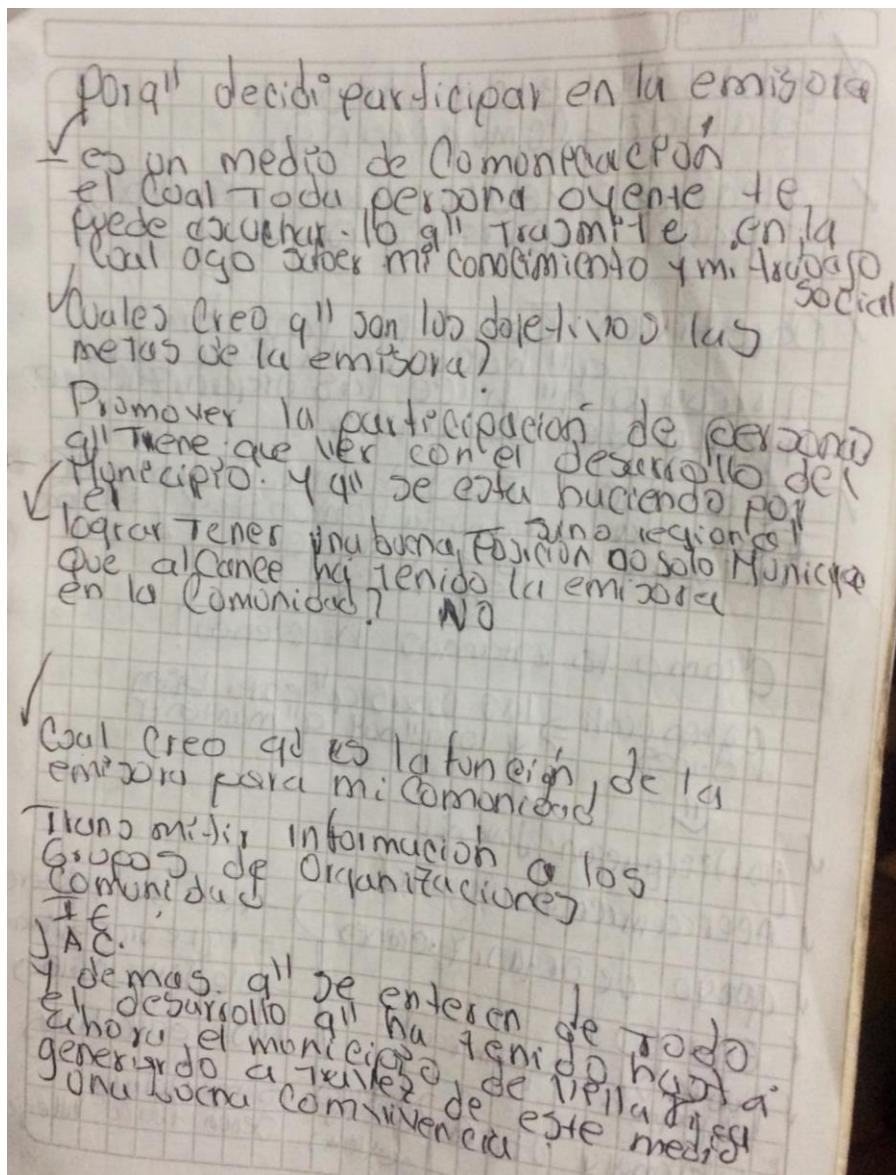 Porq" decidi participar en la emisora
- es un medio de Comonicación
el Coal Toda persona oyente te
puede escuchar. lo q" Trasmite en la
Coal ago saber mi conocimiento y mi trabajo
social
Cuales Creo q" son los objetivos las
metas de la emisora?
Promover la partecipación de personas
q" Tiene que ver con el desarrollo del
Munecipio. Y q" se esta haciendo por
el
lograr Tener una buena Posición no solo Municipio
sino regional
Que alcance ha Tenido la emisora
en la Comonidad? NO
Coal Creo qd es la función de la
emisora para mi Comonidad
Transmitir Información a los
Grupos de Organizaciones
Comunidad
I E
J A C.
Y demas. q" se enteren de Todo
el desarrollo q" ha tenido hasta
Ahora el monicipio de
generardo a Travez de este medio
una buena Comvivencia